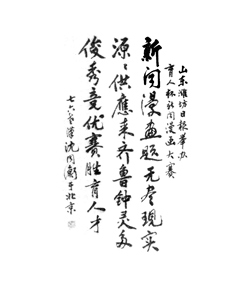 山东潍坊日报举办
育人杯新闻漫画大赛
新闻漫画题无尽现实
源〻供應来齐鲁钟灵多
俊秀竞优赛胜育人才
七六叟沈同衡于北京